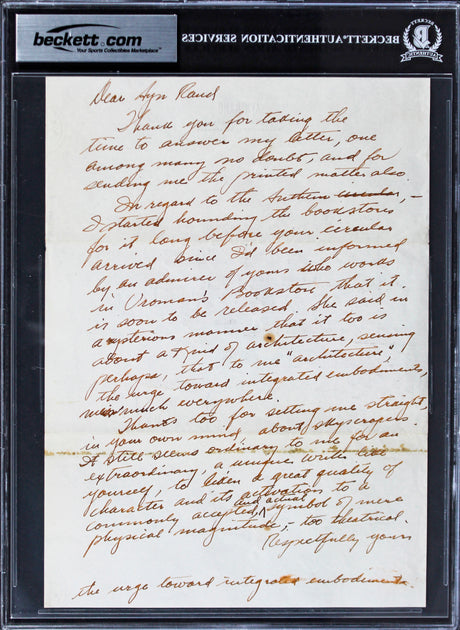 beckett.com
Your Sports Collectibles Marketplace
BECKETT AUTHENTICATION SERVICES
BECKETT
Dear Ayn Rand
Thank you for taking the
time to answer my letter, one
among many no doubt, and for
sending me the printed matter also.
In regard to the Anthem circular, –
I started hounding the bookstores
for it long before your circular
arrived since I'd been informed
by an admirer of yours who works
in Vroman's Bookstore that it
is soon to be released. She said in
a mysterious manner that it too is
about a kind of architecture, sensing
perhaps, that to me "architecture",
the urge toward integrated embodiments,
much everywhere.
Thanks too for setting me straight,
in your own mind, about skyscrapers.
It still seems ordinary to me for an
extraordinary, a unique with
yourself, to liken a great quality of
character and its activation to a
commonly accepted, and actual symbol of mere
physical magnitude; – too theatrical.
Respectfully yours
the urge toward integrated embodiments.